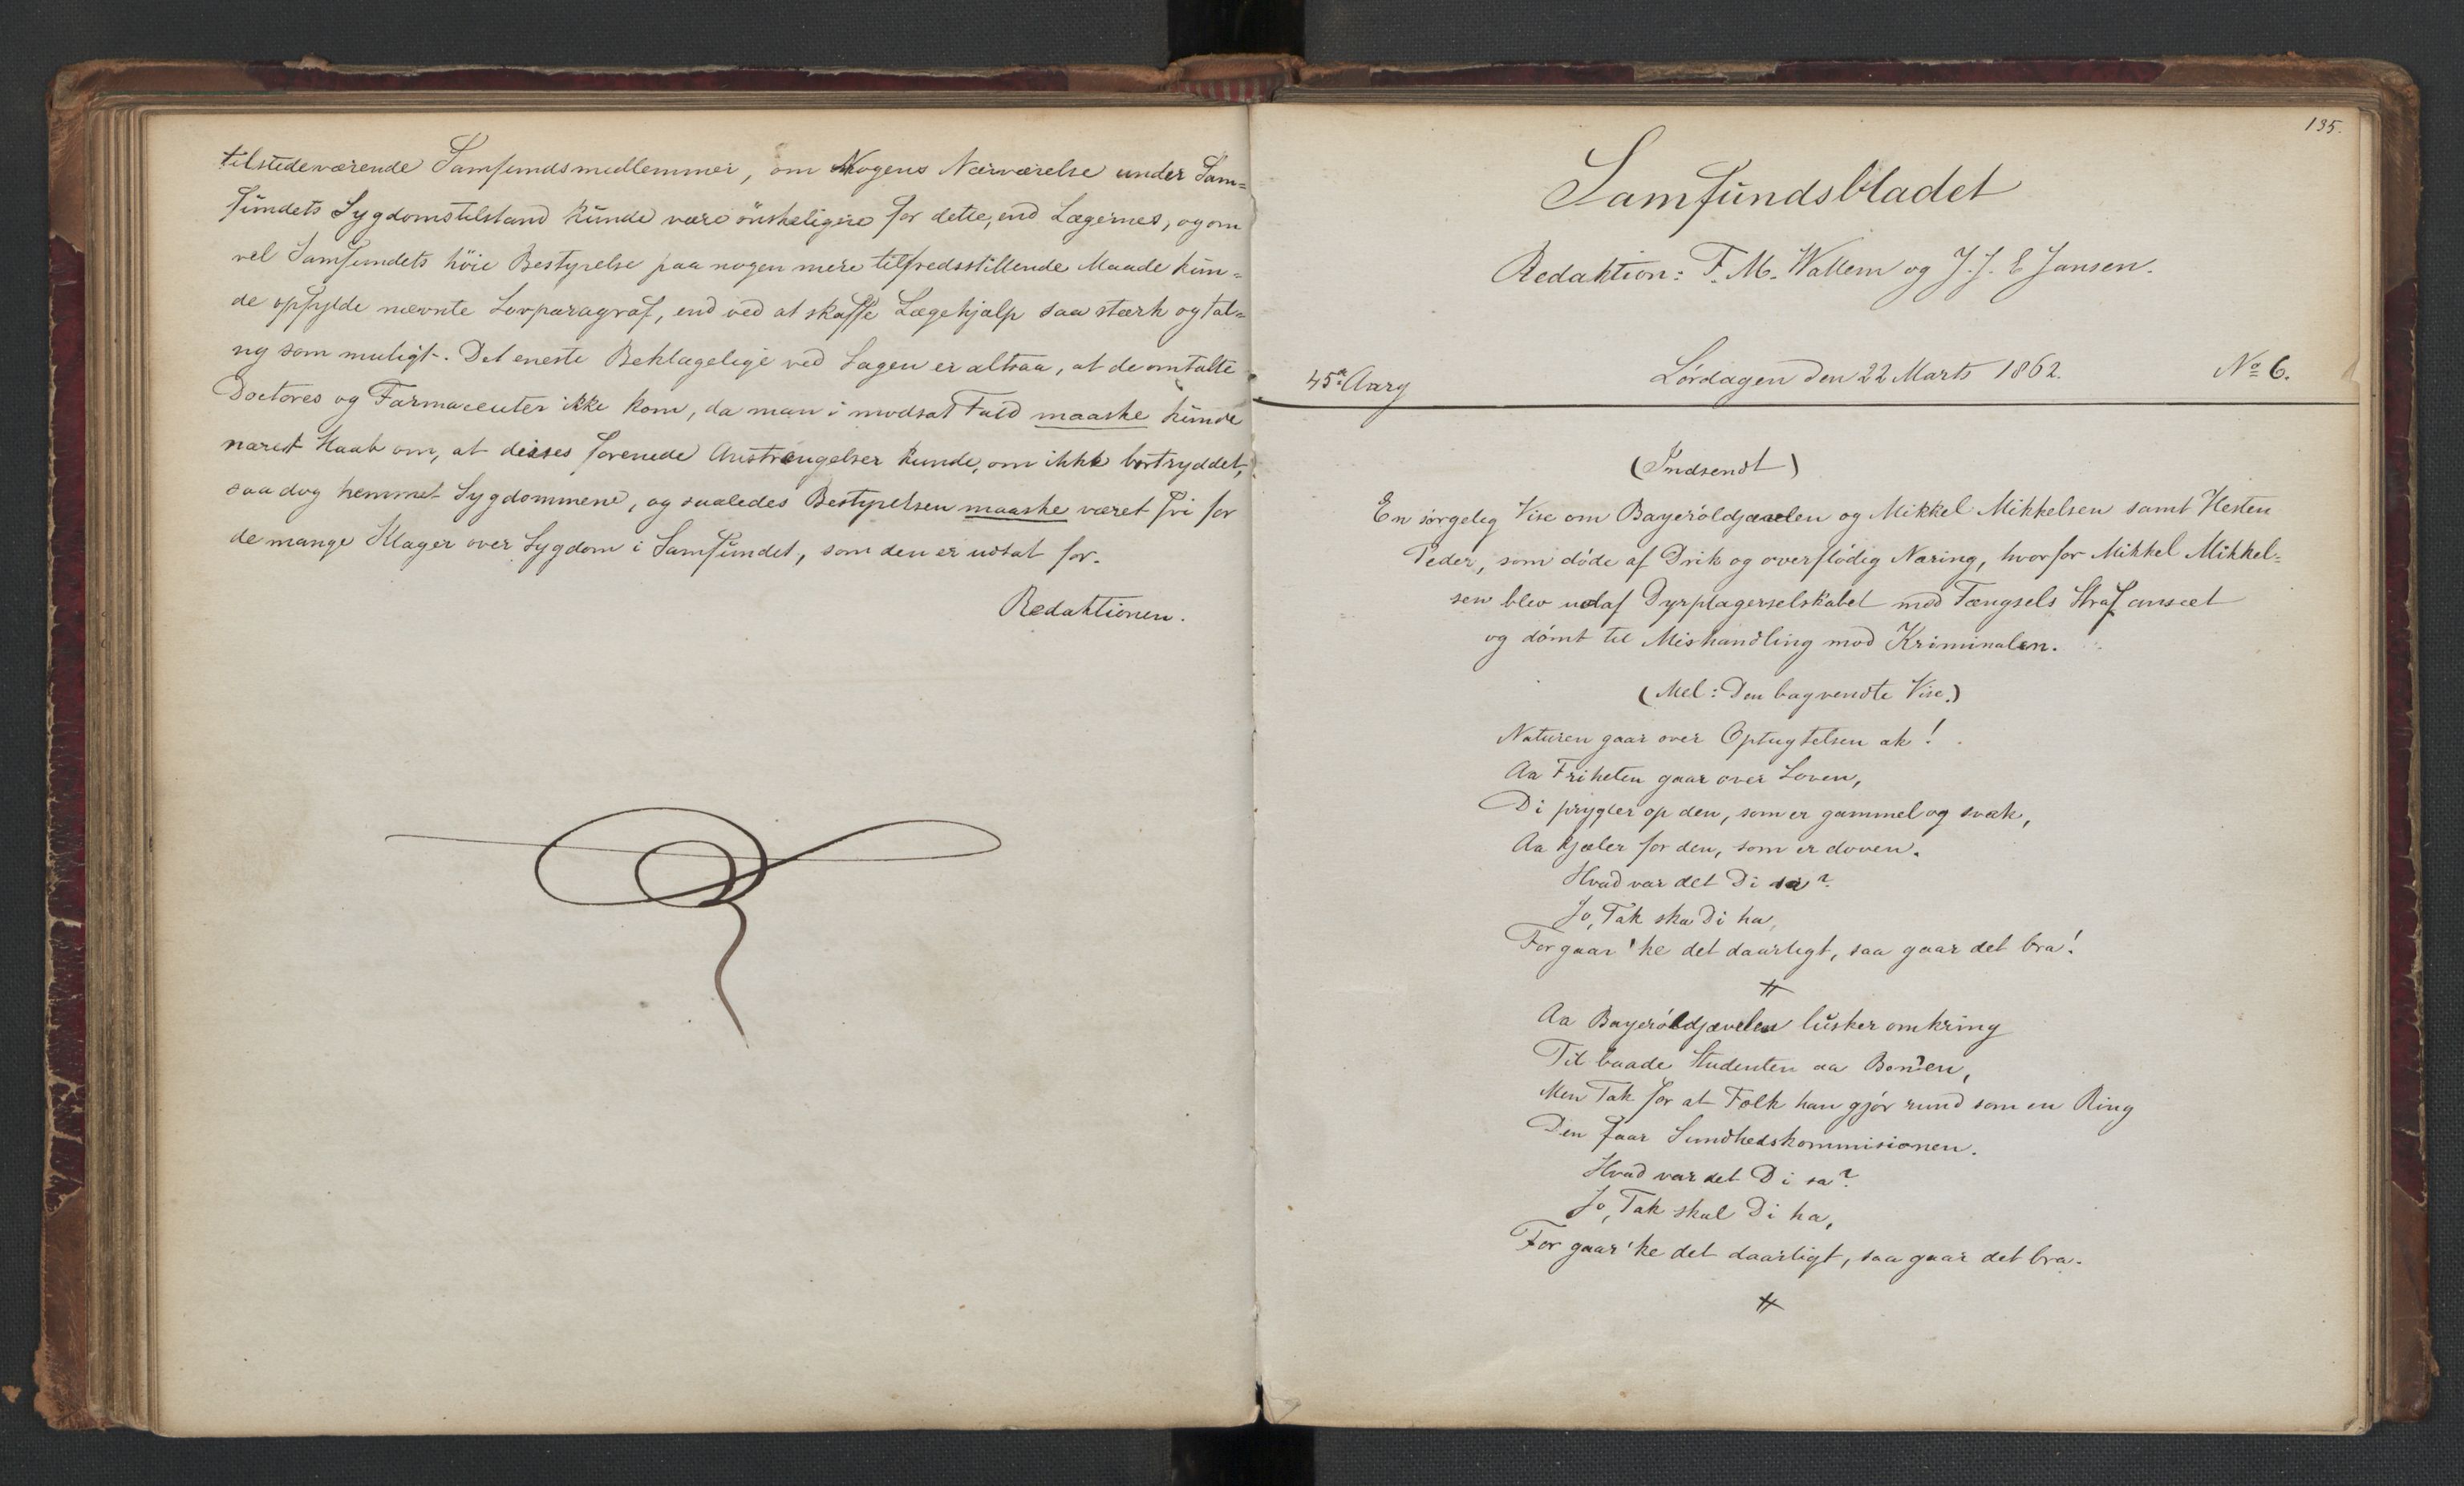 tilstedeværende Samfundsmedlemmer, om Nogens Nærværelse under Sam=
fundets Sygdomstilstand kunde være önskeligere for dette, end Lægernes, og om
vel Samfundets höie Bestyrelse paa nogen mere tilfredsstillende Maade kun=
de opfylde nævnte Lovparagraf, end ved at skaffe Lægehjælp saa stærk og tal=
rig som muligt. Det eneste Beklagelige ved Sagen er altsaa, at de omtalte
Doctores og Farmaceuter ikke kom, da man i modsat Fald maaske kunde
næret Haab om, at disses forenede Anstrængelser kunde, om ikke bortryddet,
saa dog hemmet Sygdommene, og saaledes Bestyrelsen maaske været fri for
de mange Klager over Sygdom i Samfundet, som den er udsat for.
Redaktionen.
135.
Samfundsbladet
Redaktion: F. M. Wallem og J. J. E Jansen.
45de Aarg
Lørdagen den 22 Marts 1862.
No 6.
(Indsendt)
En sørgelig Vise om Bayerøldjævelen og Mikkel Mikkelsen samt Hesten
Peder, som døde af Drik og overflødig Næring, hvorfor Mikkel Mikkel=
sen blev udaf Dyrplagerselskabet med Fængsels Straf anseet
og dømt til Mishandling mod Kriminalen.
(Mel: Den bagvendte Vise.)
Naturen gaar over Optugtelsen ak!
Aa Friheten gaar over Loven,
Di prygler op den, som er gammel og svak,
Aa kjæler for den, som er doven.
Hvad var det Di sa?
Jo, Tak ska Di ha,
For gaar 'ke det daarligt, saa gaar det bra!
Aa Bayerøldjævelen lusker omkring
Til baade Studenten aa Bonden,
Men Tak for at Folk han gjør rund som en Ring
Den faar Sundhedskommisionen.
Hvad var det Di sa?
Jo, Tak skal Di ha,
For gaar 'ke det daarligt, saa gaar det bra.